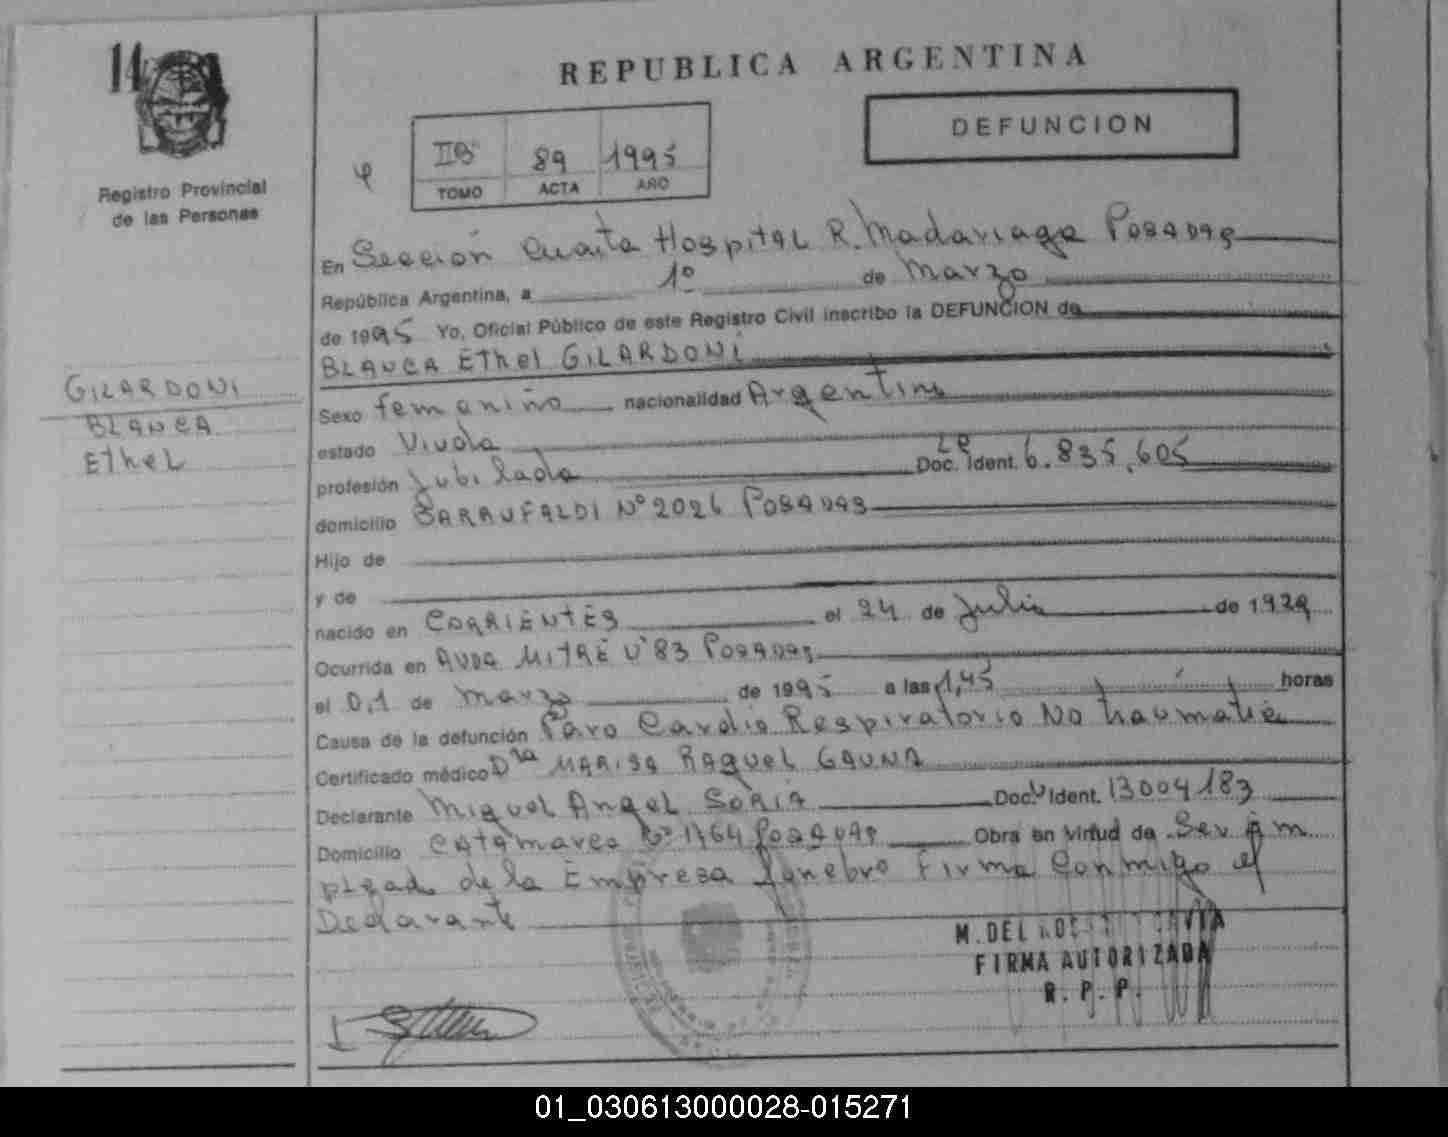 14
REPUBLICA ARGENTINA
DEFUNCION
IIB 89 1995
TOMO ACTA AÑO
Registro Provincial
de las Personas
En Sección Cuarta Hospital R. Madariaga Posadas
República Argentina, a 1º de Marzo
de 1995 Yo, Oficial Público de este Registro Civil inscribo la DEFUNCION de
BLANCA Ethel GILARDONI
GILARDONI
BLANCA
Ethel
Sexo femenino nacionalidad Argentina
estado Viuda
profesión Jubilada Doc. Ident. 6.835.605
domicilio Nº 2026 Posadas
Hijo de
y de
nacido en CORRIENTES el 24 de Julio de 1929
Ocurrida en AVDA MITRE Nº 83 Posadas
el 0,1 de Marzo de 1995 a las 1,45 horas
Causa de la defunción Paro Cardio Respiratorio No traumatic
Certificado médico Dra MARISA RAQUEL GAUNA
Declarante Miguel Angel SORIA Doc. Ident. 13004183
Domicilio Catamarca Nº 1764 Posadas Obra en virtud de Ser Em
plead de la Empresa funebre Firma Conmigo el
Declarante
M. DEL
FIRMA AUTORIZADA
R. P. P.
01_030613000028-015271